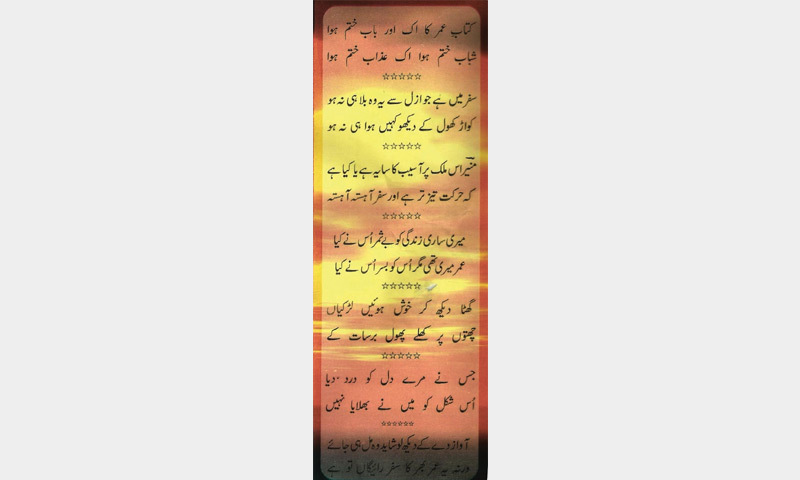 کتابِ عمر کا اک اور باب ختم ہوا
شباب ختم ہوا اک عذاب ختم ہوا
☆☆☆☆☆
سفر میں ہے جو ازل سے یہ وہ بلا ہی نہ ہو
کواڑ کھول کے دیکھو کہیں ہوا ہی نہ ہو
☆☆☆☆☆
منیر اس ملک پر آسیب کا سایہ ہے یا کیا ہے
کہ حرکت تیز تر ہے اور سفر آہستہ آہستہ
☆☆☆☆☆
میری ساری زندگی کو بے ثمر اُس نے کیا
عمر میری تھی مگر اُس کو بسر اُس نے کیا
☆☆☆☆☆
گھٹا دیکھ کر خوش ہوئیں لڑکیاں
چھتوں پر کھلے پھول برسات کے
☆☆☆☆☆
جس نے مرے دل کو درد دیا
اُس شکل کو میں نے بھلایا نہیں
☆☆☆☆☆☆
آواز دے کے دیکھ لو شاید وہ مل ہی جائے
ورنہ یہ عمر بھر کا سفر رائیگاں تو ہے